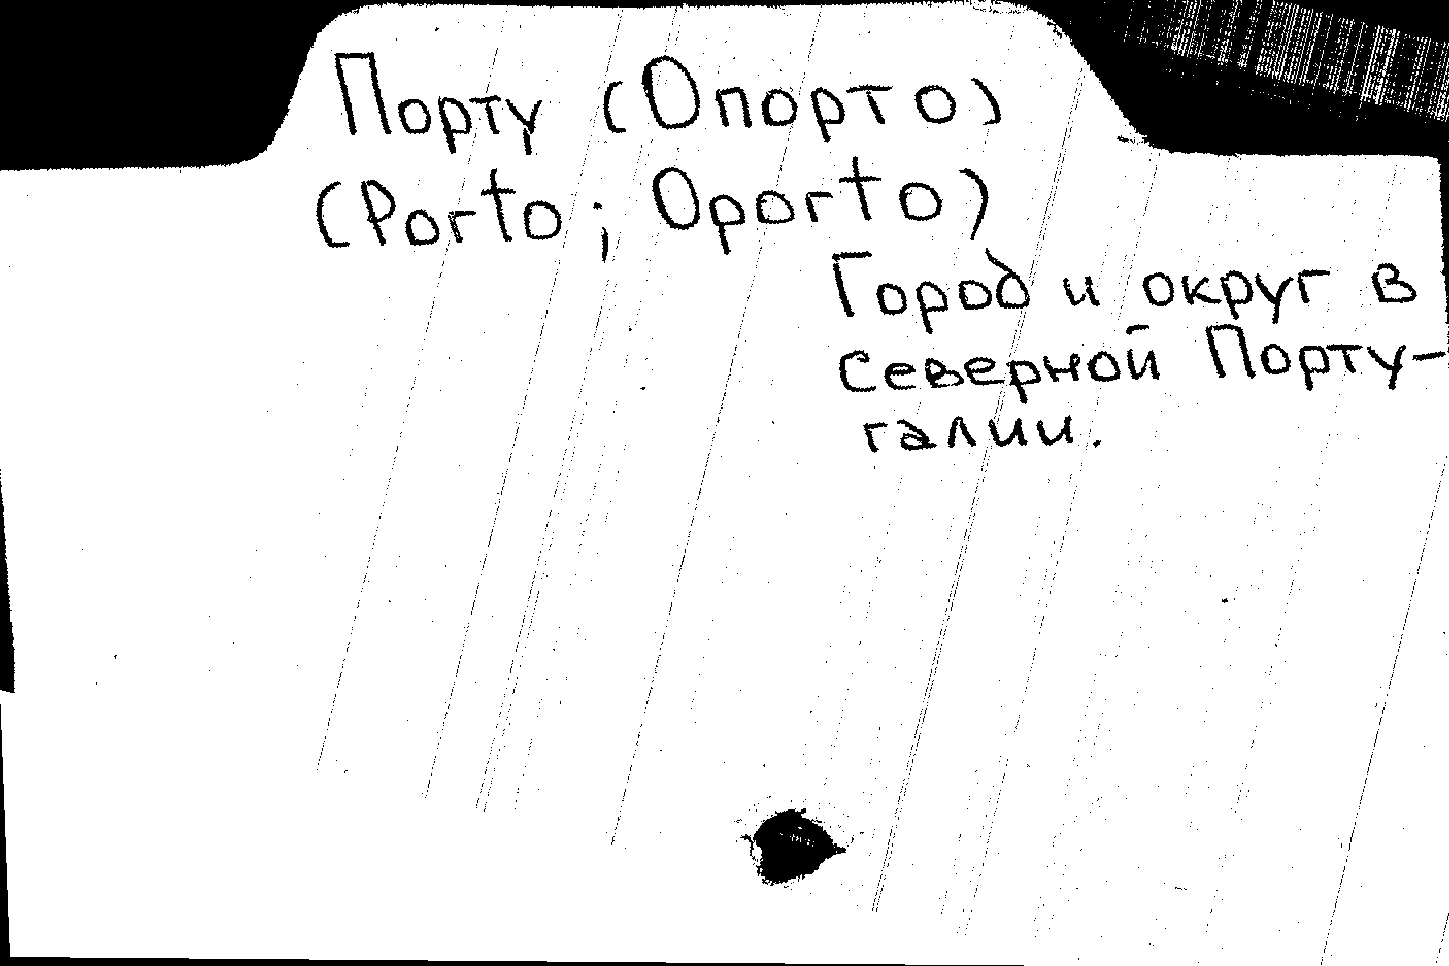 Порту (Опорто)
(Porto; Oporto)
Город и округ в
северной Порту-
галии.